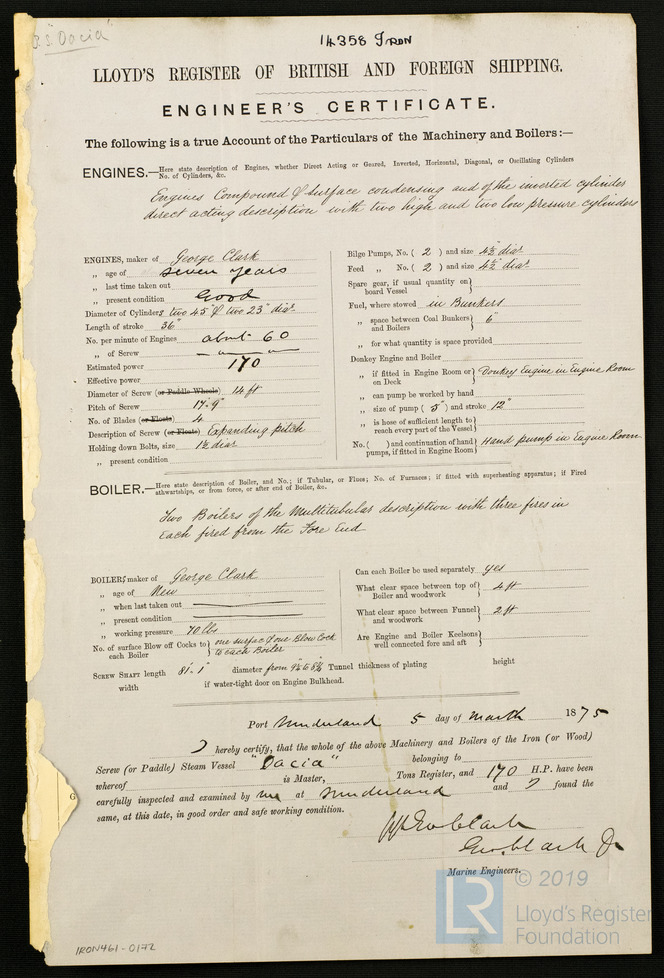 S.S. "Dacia"
14358 Iron
LLOYD'S REGISTER OF BRITISH AND FOREIGN SHIPPING.
ENGINEER'S CERTIFICATE.
The following is a true Account of the Particulars of the Machinery and Boilers:—
ENGINES.—Here state description of Engines, whether Direct Acting or Geared, Inverted, Horizontal, Diagonal, or Oscillating Cylinders
No. of Cylinders, &c.
Engines Compound & Surface condensing and of the inverted cylinder
direct acting description with two high and two low pressure cylinders
ENGINES, maker of George Clark
„ age of Seven years
„ last time taken out
„ present condition Good
Diameter of Cylinders two 45" & two 23" diar.
Length of stroke 36"
No. per minute of Engines about 60
„ of Screw
Estimated power 170
Effective power
Diameter of Screw (or Paddle Wheels) 14 ft
Pitch of Screw 17-9"
No. of Blades (or Floats) 4
Description of Screw (or Floats) Expanding pitch
Holding down Bolts, size 1½ diar
„ present condition
Bilge Pumps, No. ( 2 ) and size 4½" diar
Feed „ No. ( 2 ) and size 4½" diar.
Spare gear, if usual quantity on
board Vessel
Fuel, where stowed in Bunkers
„ space between Coal Bunkers 6"
and Boilers
„ for what quantity is space provided
Donkey Engine and Boiler
„ if fitted in Engine Room or Donkey Engine in Engine Room
on Deck
„ can pump be worked by hand
„ size of pump ( 5" ) and stroke 12"
„ is hose of sufficient length to
reach every part of the Vessel
No. ( ) and continuation of hand Hand pump in Engine Room
pumps, if fitted in Engine Room
BOILER.—Here state description of Boiler, and No.; if Tubular, or Flues; No. of Furnaces; if fitted with superheating apparatus; if Fired
athwartships, or from force, or after end of Boiler, &c.
Two Boilers of the Multitubular description with three fires in
Each fired from the Fore End
BOILER, maker of George Clark
„ age of New
„ when last taken out
„ present condition
„ working pressure 70 lbs
No. of surface Blow off Cocks to one surface & one Blow Cock
each Boiler to each Boiler
Can each Boiler be used separately yes
What clear space between top of 4 ft
Boiler and woodwork
What clear space between Funnel 2 ft
and woodwork
Are Engine and Boiler Keelsons
well connected fore and aft
SCREW SHAFT length 81'. 1" diameter from Tunnel thickness of plating height
width if water-tight door on Engine Bulkhead.
Port Sunderland 5 day of March 1875
I hereby certify, that the whole of the above Machinery and Boilers of the Iron (or Wood)
Screw (or Paddle) Steam Vessel "Dacia" belonging to
whereof is Master, Tons Register, and 170 H.P. have been
carefully inspected and examined by me at Sunderland and I found the
same, at this date, in good order and safe working condition.
Geo Clark
Geo. Clark Jr
Marine Engineers.
G
© 2019
LR
Lloyd's Register
Foundation
IRON461-0172